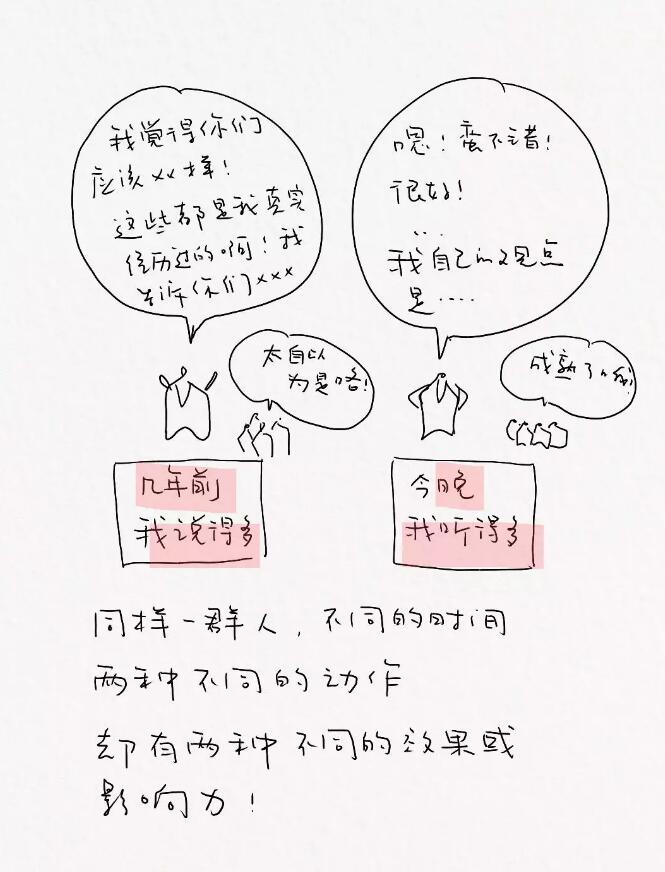 我觉得你们
应该xx样!
这些都是我真实
经历过的啊!我
告诉你们xxx
太自以
为是咯!
几年前
我说得多
嗯!蛮不错!
很好!
....
我自己的观点
是....
成熟了哦!
今晚
我听得多
同样一群人,不同的时间
两种不同的动作
却有两种不同的效果或
影响力!